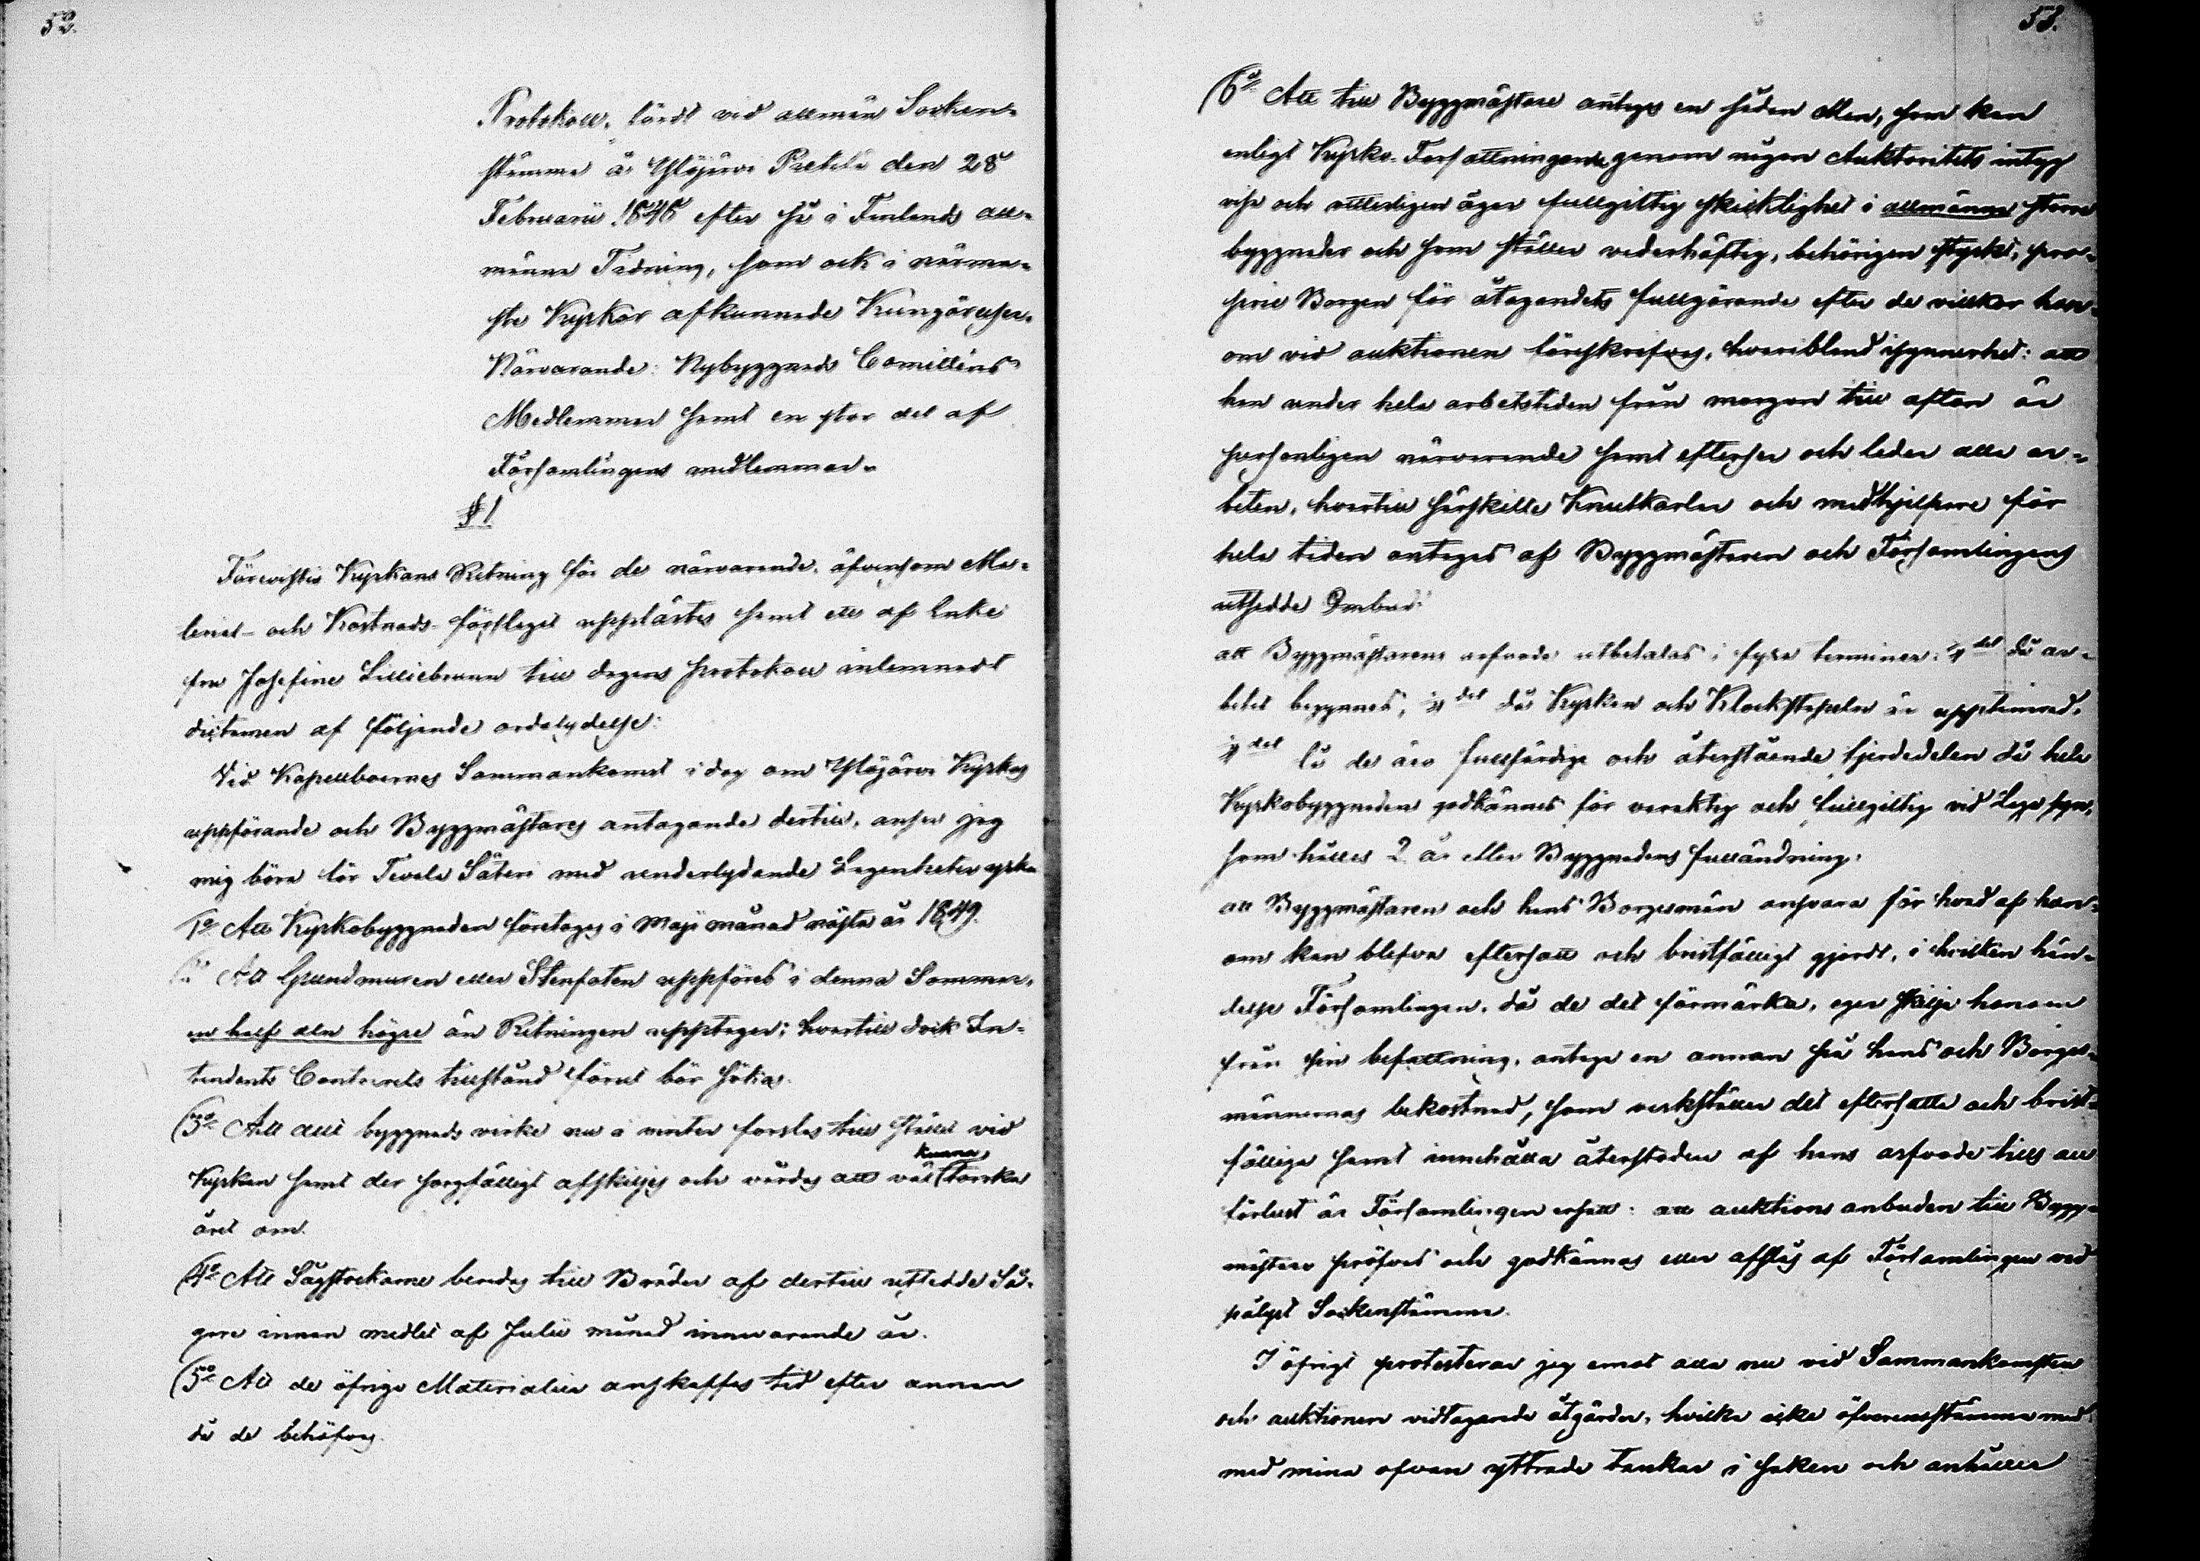 52.
Protokoll, fördt vid allmän Socken-
stämma å Ylöjärvi Pretila den 28
Februarii 1848 efter så i Finlands all-
männa Tidning, som ock i närma-
ste Kyrkor afkunnade Kungörelser.
Närvarande: Nybyggnads Comitténs
Medlemmar samt en stor del af
Församlingens medlemmar.
§ 1
Förevistes Kyrkans Ritning för de närvarande, äfvensom Ma-
terial- och Kostnads-förslaget upplästes samt ett af Enke
fru Josefina Lilliebrunn till dagens protokoll inlemnadt
dictamen af följande ordalydelse:
Vid Kapellboernes Sammankomst i dag om Ylöjärvi Kyrkas
uppförande och Byggmästares antagande dertill, anser jag
mig böra för Tevala Säteri med underlydande Lägenheter yrka
1o Att Kyrkobyggnaden företages i Maji månad nästa år 1849.
Att Grundmuren eller Stenfoten uppföres i denna Sommar,
en half aln högre än Ritningen upptager; hvartill dock In-
tendents Contorets tillstånd förut bör sökas.
(3o Att allt byggnads virke nu i vinter forslas till stället vid
kunna
Kyrkan samt der sorgfälligt afskiljes och vårdas att väl torka
året om.
(4o Att Sågstockarne beredas till Bräder af dertill utsedde Så-
gare innan medlet af Julii månad innevarande år.
(5o Att de öfriga Materialier anskaffas tid efter annan
då de behöfvas.
53.
(6o Att till Byggmästare antages en sådan Man, som kan
enligt Kyrko-Författningarne genom någon Auktoritets intyg
visa och ådagaläggen äger fullgiltig skicklighet i allmänna större
byggnader och som ställer vederhäftig, behörigen styrkt, pro-
prie Borgen för åtagandets fullgörande efter de villkor hon-
om vid auktionen föreskrifves, hvaribland isynnerhet: att
han under hela arbetstiden från morgon till afton är
personligen närvarande samt efterser och leder alla ar-
beten, hvartill särskilta Knutkarlar och medhjelpare för
hela tiden antages af Byggmästaren och Församlingens
utsedde Ombud:
att Byggmästarens arfvode utbetalas i fyra terminer: ¼ del då ar-
betet begynnes, ¼ del då Kyrkan och Klockstapeln är upptimrad,
¼ del då de äro fullfärdige och återstående fjerdedelen då hela
Kyrkobyggnaden godkännes för varaktig och fullgiltig vid Laga syn,
som hålles 2 år efter Byggnadens fulländning:
att Byggmästaren och hans Borgesmän ansvara för hvad af hon-
om kan blifva eftersatt och bristfälligt gjordt, i hvilken hän-
delse Församlingen, då de det förmärka, eger skilja honom
från sin befattning, antaga en annan på hans och Borges-
männernas bekostnad, som verkställer det eftersatta och brist-
fälliga samt innehålla återstoden af hans arfvode tills all
förlust är Församlingen ersatt: att auktions anbuden till Bygg-
mästare pröfves och godkännas eller afslås af Församlingen vid
pålyst Sockenstämma.
I öfrigt protesterar jag emot alla nu vid Sammankomsten
och auktionen vidtagande åtgärder, hvilka icke öfverensstämma med
med mina ofvan yttrade tankar i saken och anhåller